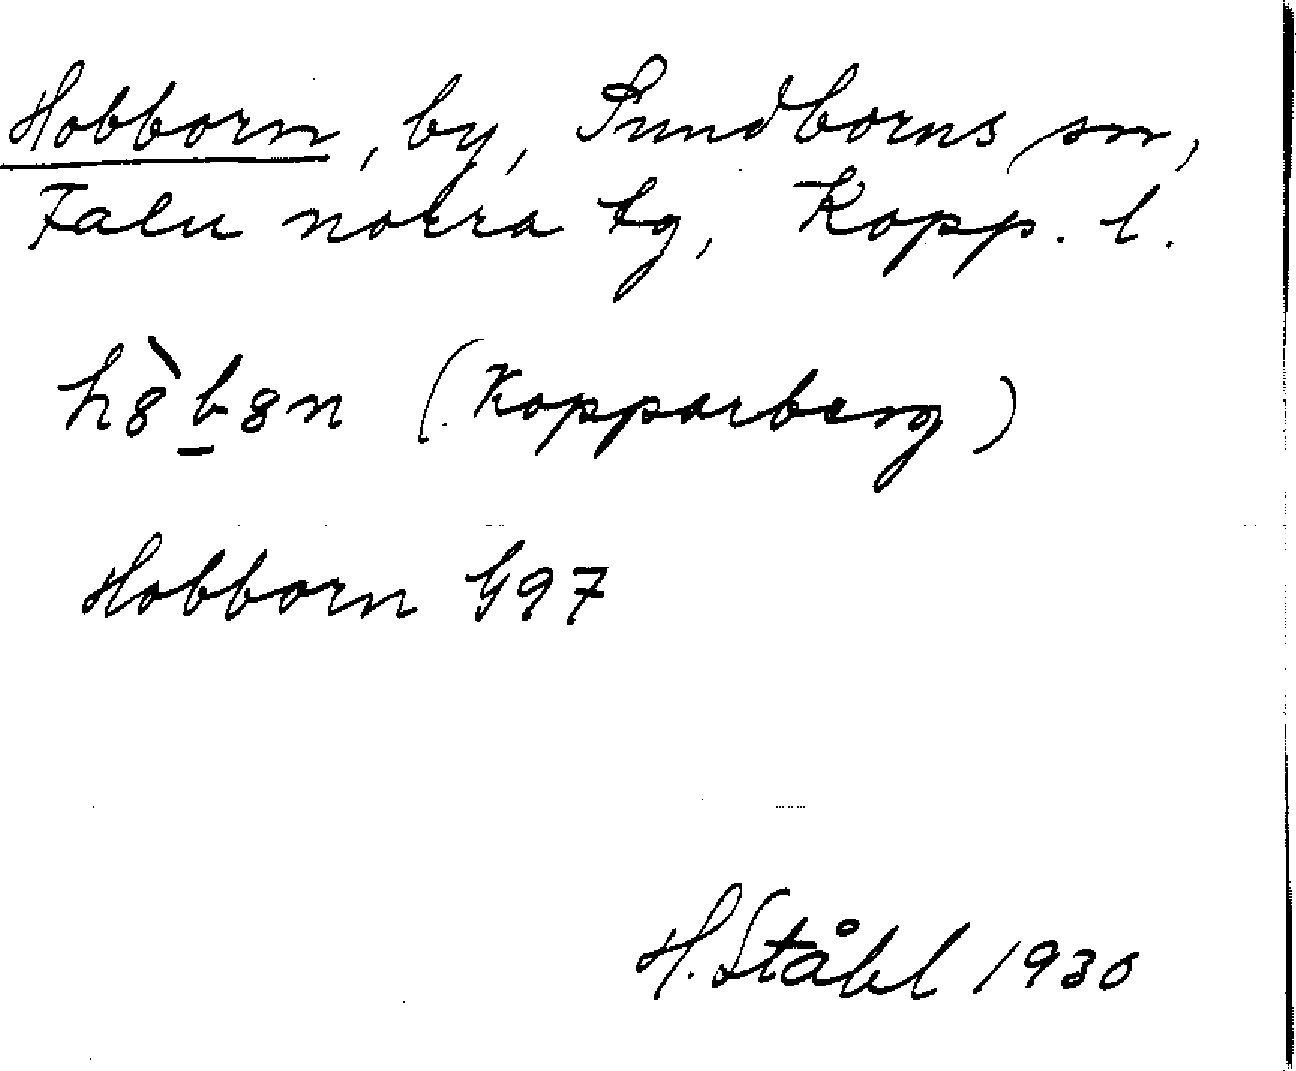 Hobborn, by, Sundborns sn,
Falu norra tg, Kopp. l.
(Kopparberg)
Hobborn G97
H. Ståhl 1930